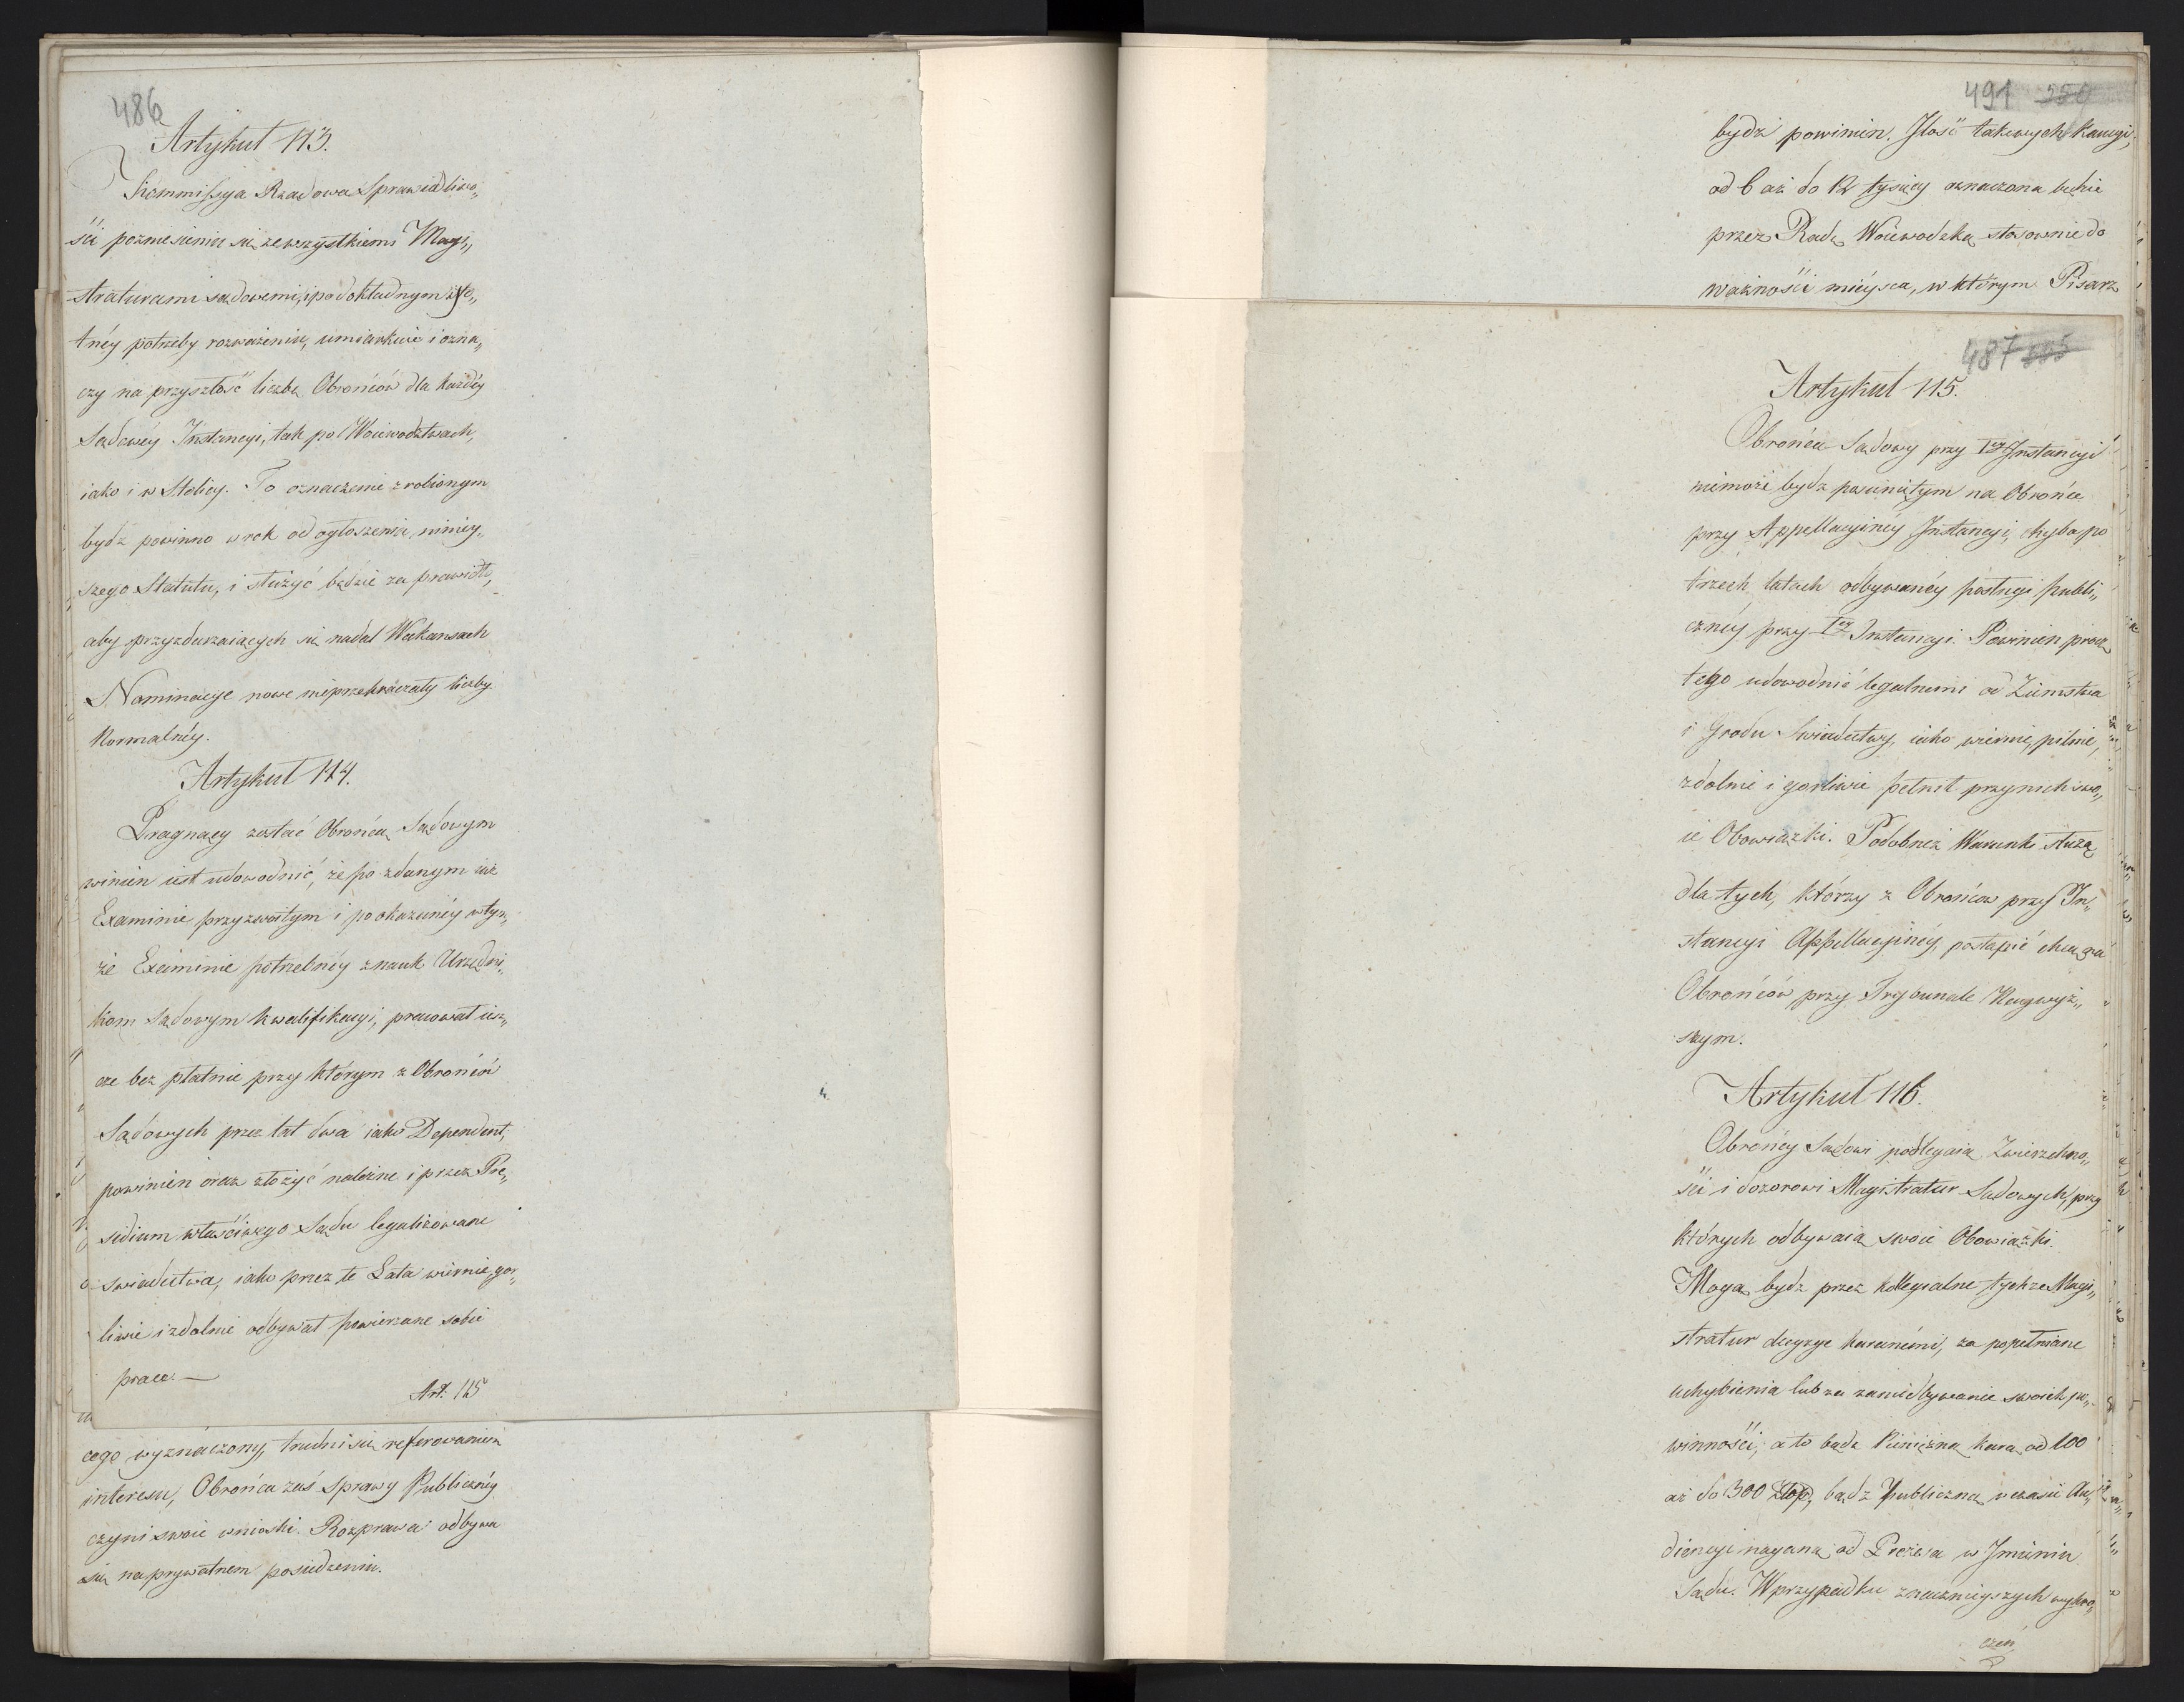 486
Artykuł 113.
Kommissya Rządowa Sprawiedliwo„
ści pozniesieniu się zewszystkiemi Magi„
straturami sądowemi, i po dokładnym isto„
tnéy potrzeby rozważeniu, umiarkuie i ozna„
czy na przyszłość liczbę Obrońców dla każdéy
Sądowéy Instancyi, tak po Woiewództwach,
iako i w Stolicy. To oznaczenie zrobionym
bydź powinno w rok od ogłoszenia niniey„
szego Statutu, i służyć będzie za prawidło,
aby przyzdarzaiących się nadal Wakansach
Nominacye nowe nieprzekraczały liczby
Normalnéy.
Artykuł 114.
Pragnący zostać Obrońcą Sądowym
winien iest udowodnić, że po zdanym iuż
Examinie przyzwoitym i po okazanéy w tym„
że Examinie potrzebnéy z nauk Urzędni„
kom Sądowym kwalifikacyi, pracował iesz„
cze bez płatnie przy którym z Obrońców
Sądowych przez lat dwa iako Dependent,
powinien oraz złożyć należne i przez Pre„
sidium właściwego Sądu legalizowane
swiadectwa, iako przez te Lata wiernie, gor„
liwie i zdolnie odbywał powierzane sobie
prace. —
Art. 115
cego wyznaczony, trudni się referowaniem
interesu, Obrońca zaś Sprawy Publicznéy
czyni swoie wnioski. Rozprawa odbywa
się na prywatnem posiedzeniu.
491 350
bydź powinien. Ilość takowych Kaucyi,
od 6 aż do 12 tysięcy oznaczona będzie
przez Radę Woiewodzką stosownie do
ważności mieysca, w którym Pisarz
487
Artykuł 115.
Obrońca Sądowy przy Iey Instancyi
niemoże bydź posuniętym na Obrońcę
przy Appellacyinéy Instancyi, chyba po
trzech latach odbywanéy posługi publi„
cznéy przy Iey Instancyi. Powinien prócz
tego udowodnić legalnemi od Ziemstwa
i Grodu Swiadectwy, iako wiernie, pilnie,
zdolnie i gorliwie pełnił przy nich swo„
ie Obowiązki. Podobneż Warunki służą
dla tych, którzy z Obrońców przy In„
stancyi Appellacyinéy, postąpić chcą na
Obrońców przy Trybunale Naywyż„
szym.
Artykuł 116.
Obrońcy Sądowi podlegaią Zwierzchno„
ści i dozorowi Magistratur Sądowych, przy
których odbywaią swoie Obowiązki.
Mogą bydź przez kollegialne tychże Magi„
stratur decyzye karanemi, za popełniane
uchybienia lub za zaniedbywanie swoich po„
winności, a to bądź Pieniężną karą od 100
aż do 300 Złop, bądź publiczną w czasie Au„
diencyi naganą od Prezesa w Imieniu
Sądu. W przypadku znacznieyszych wykro„
czeń